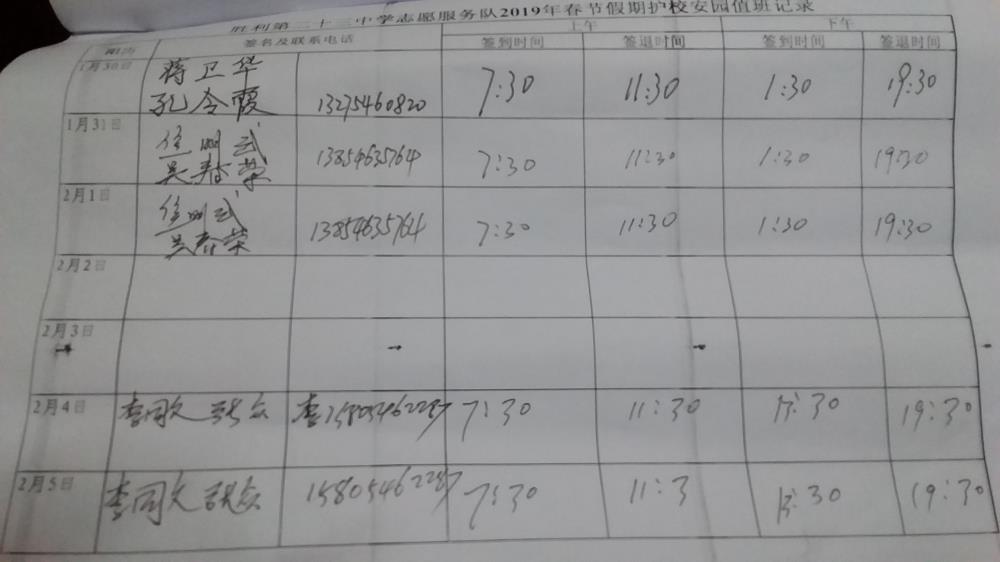 胜利第二十三中学志愿服务队2019年春节假期护校安园值班记录
阳历 签名及联系电话 上午 下午
签到时间 签退时间 签到时间 签退时间
1月30日 蒋卫华
孔令霞 13275460820 7:30 11:30 1:30 19:30
1月31日 徐明武
吴春荣 13854635764 7:30 11:30 1:30 19:30
2月1日 徐明武
吴春荣 13854635764 7:30 11:30 1:30 19:30
2月2日
2月3日
2月4日 李同文 张众 李15805462287 7:30 11:30 13:30 19:30
2月5日 李同文 张众 15805462287 7:30 11:3 13:30 19:30